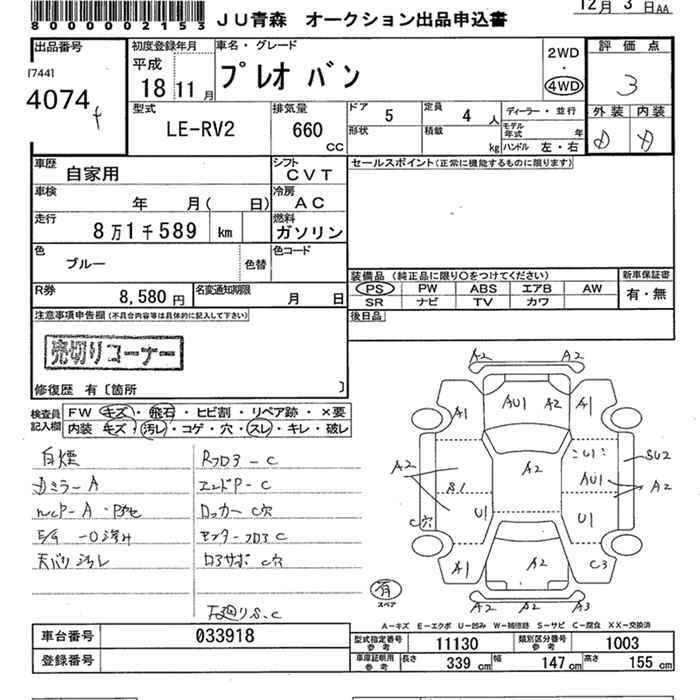 8000002153 JU青森 オークション出品申込書 12月 3日AA
出品番号 初度登録年月 車名・グレード 評価点
[744] 平成 プレオ バン 2WD
・
4074 18 11月 4WD 3
型式 排気量 ドア 5 定員 4人 ディーラー・並行 外装 内装
LE-RV2 660 CC 形状 積載 kg モデル年式 年
ハンドル 左・右 D D
車歴 自家用 シフト CVT セールスポイント(正常に機能するものに限ります)
車検 年 月( 日) 冷房 AC
走行 8万1千589 km 燃料 ガソリン
色 ブルー 色替 色コード
装備品 (純正品に限り○をつけてください) 新車保証書
R券 8,580円 名変通知期限 月 日 PS PW ABS エアB AW 有・無
SR ナビ TV カワ
注意事項申告欄(不具合内容等は具体的に記入して下さい) 後日品
売切りコーナー
修復歴 有〔箇所 〕
検査員 FW キズ・飛石・ヒビ割・リペア跡・×要
記入欄 内装 キズ・汚レ・コゲ・穴・スレ・キレ・破レ
A2 A2
A1 AU1 A2 A1
A2 A2 U1 SU2
S1 AU1 A2
C穴 U1 U1
A1 A2 C3
A2 A2 A3
カミラーA RフロアーC
エンドP-C
ロッカーC穴
センターフロアC
天バリ汚レ
有
スペア
下廻りS.C
A―キズ E―エクボ U―凹み W―補修跡 S―サビ C―腐食 XX―交換済
車台番号 033918 型式指定番号 参考 11130 類別区分番号 参考 1003
登録番号 車庫証明用 参考 長さ 339cm 幅 147cm 高さ 155cm